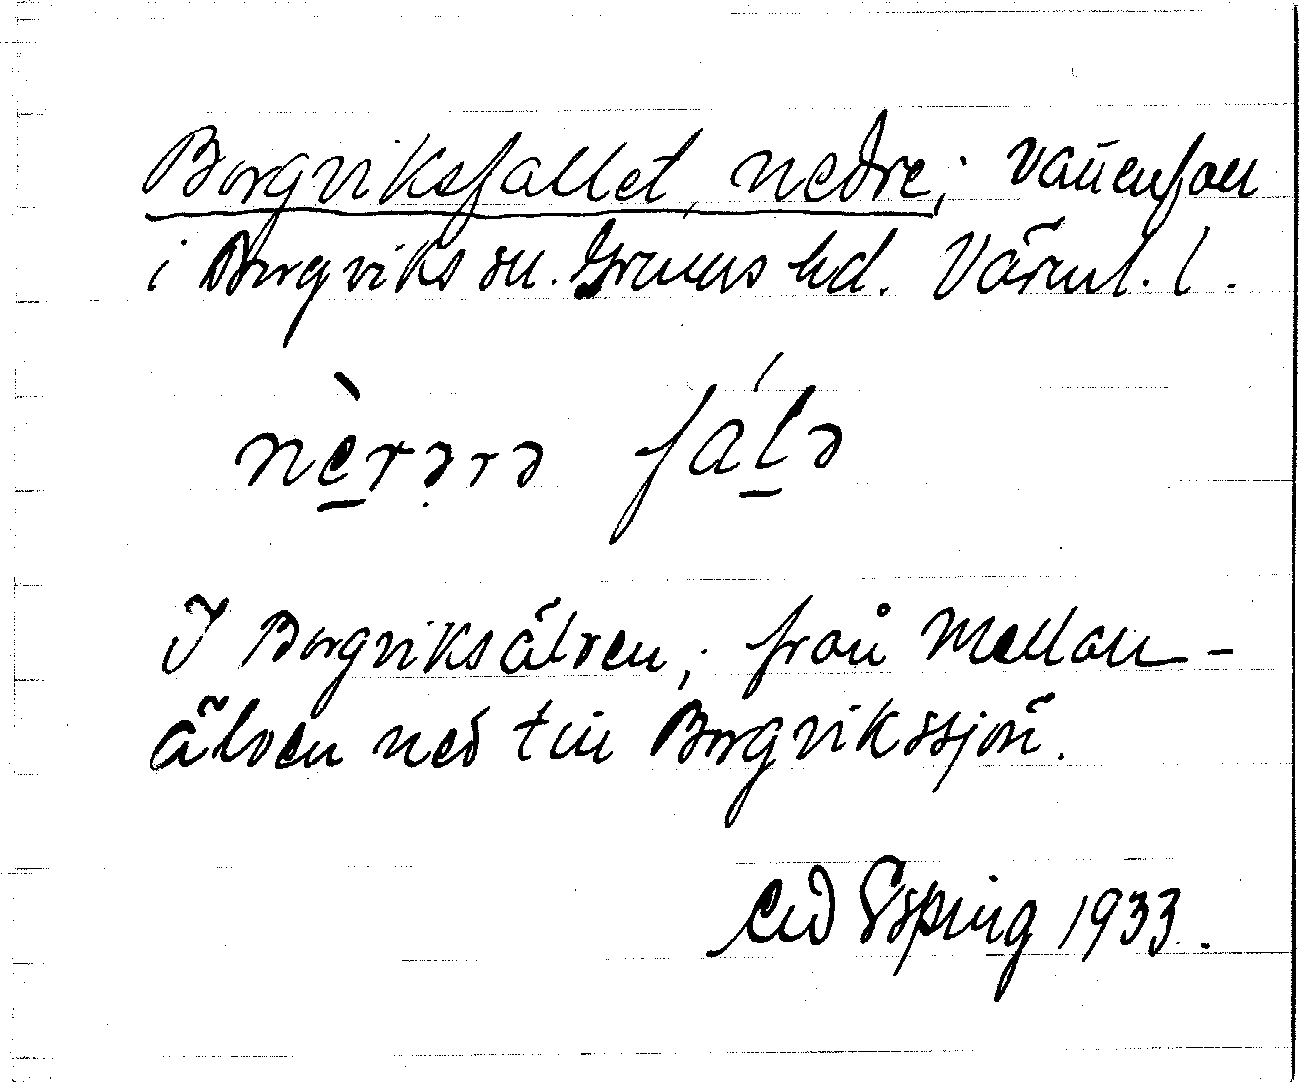 Borgviksfallet, nedre; vattenfall
i Borgviks sn. Grums hd. Värml. l.
nèrərə fálə
I Borgviksälven, från Mellan-
älven ned till Borgvikssjön.
Cid Esping 1933.